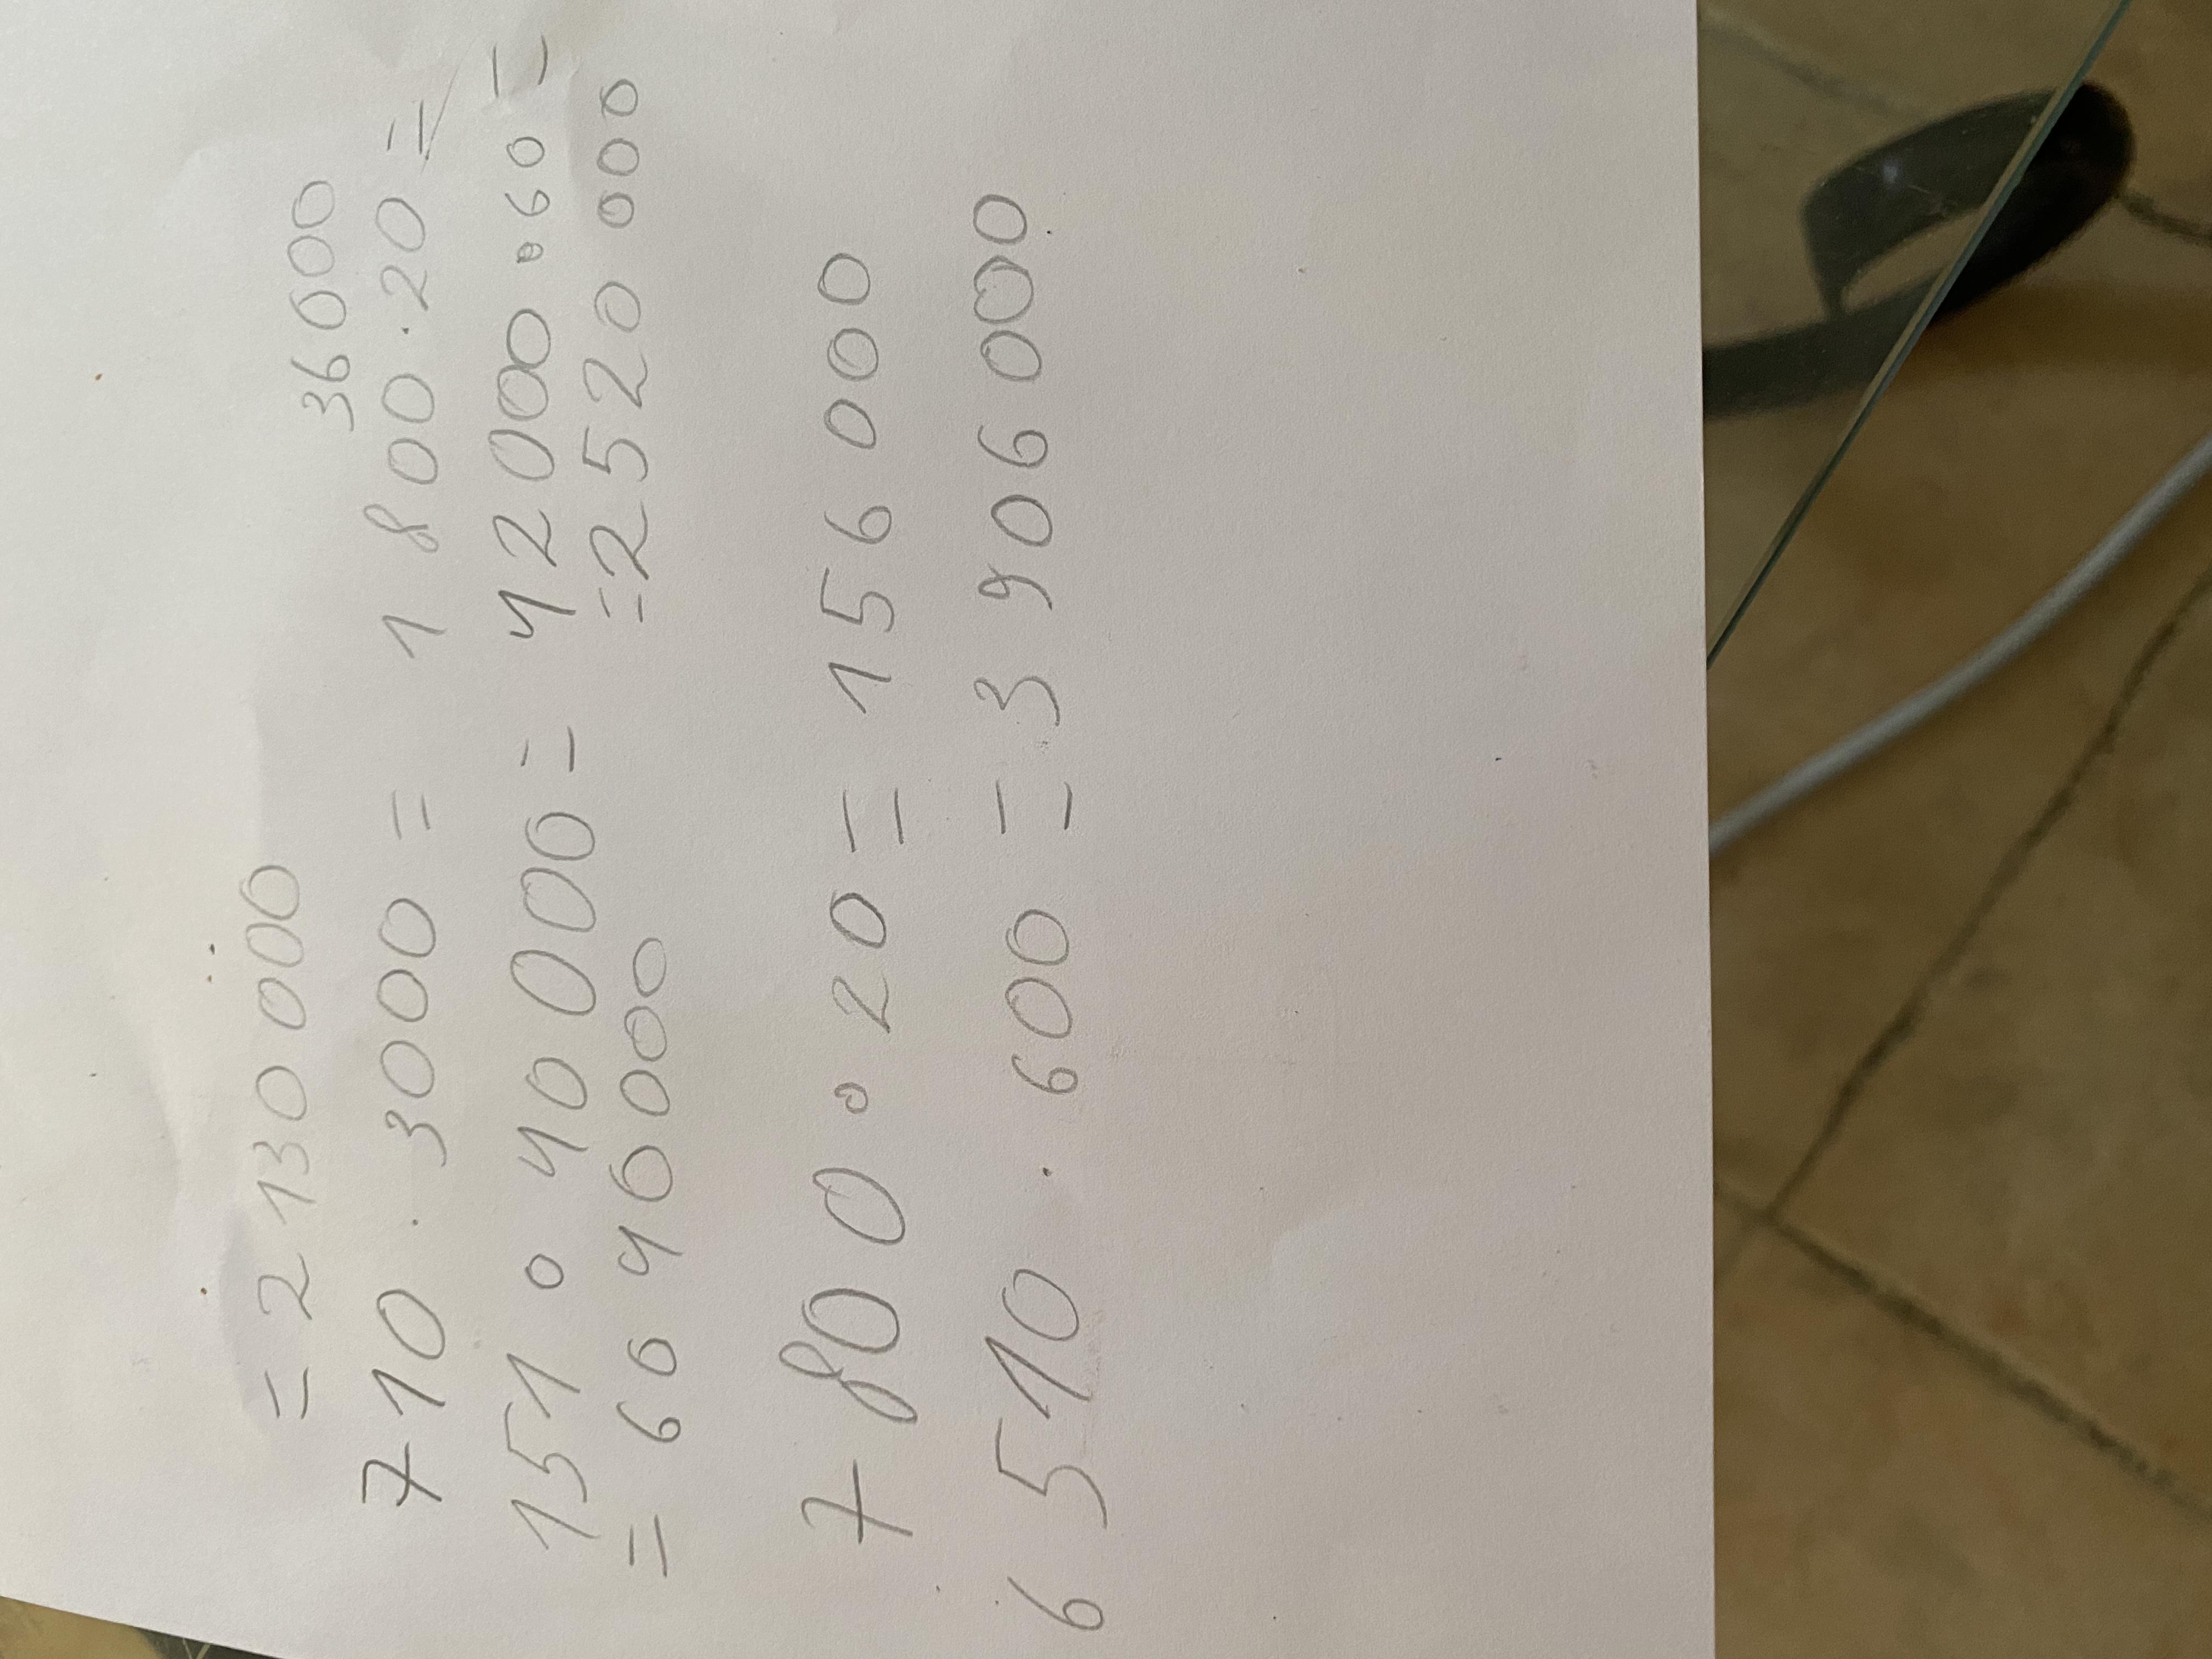 = 2 130 000 36 000
710 · 3000 = 1 800 · 20 =
151 · 40 000 = 42 000 · 60 =
= 60 40000 = 2520 000
7 800 · 20 = 156 000
6 510 · 600 = 3 906 000